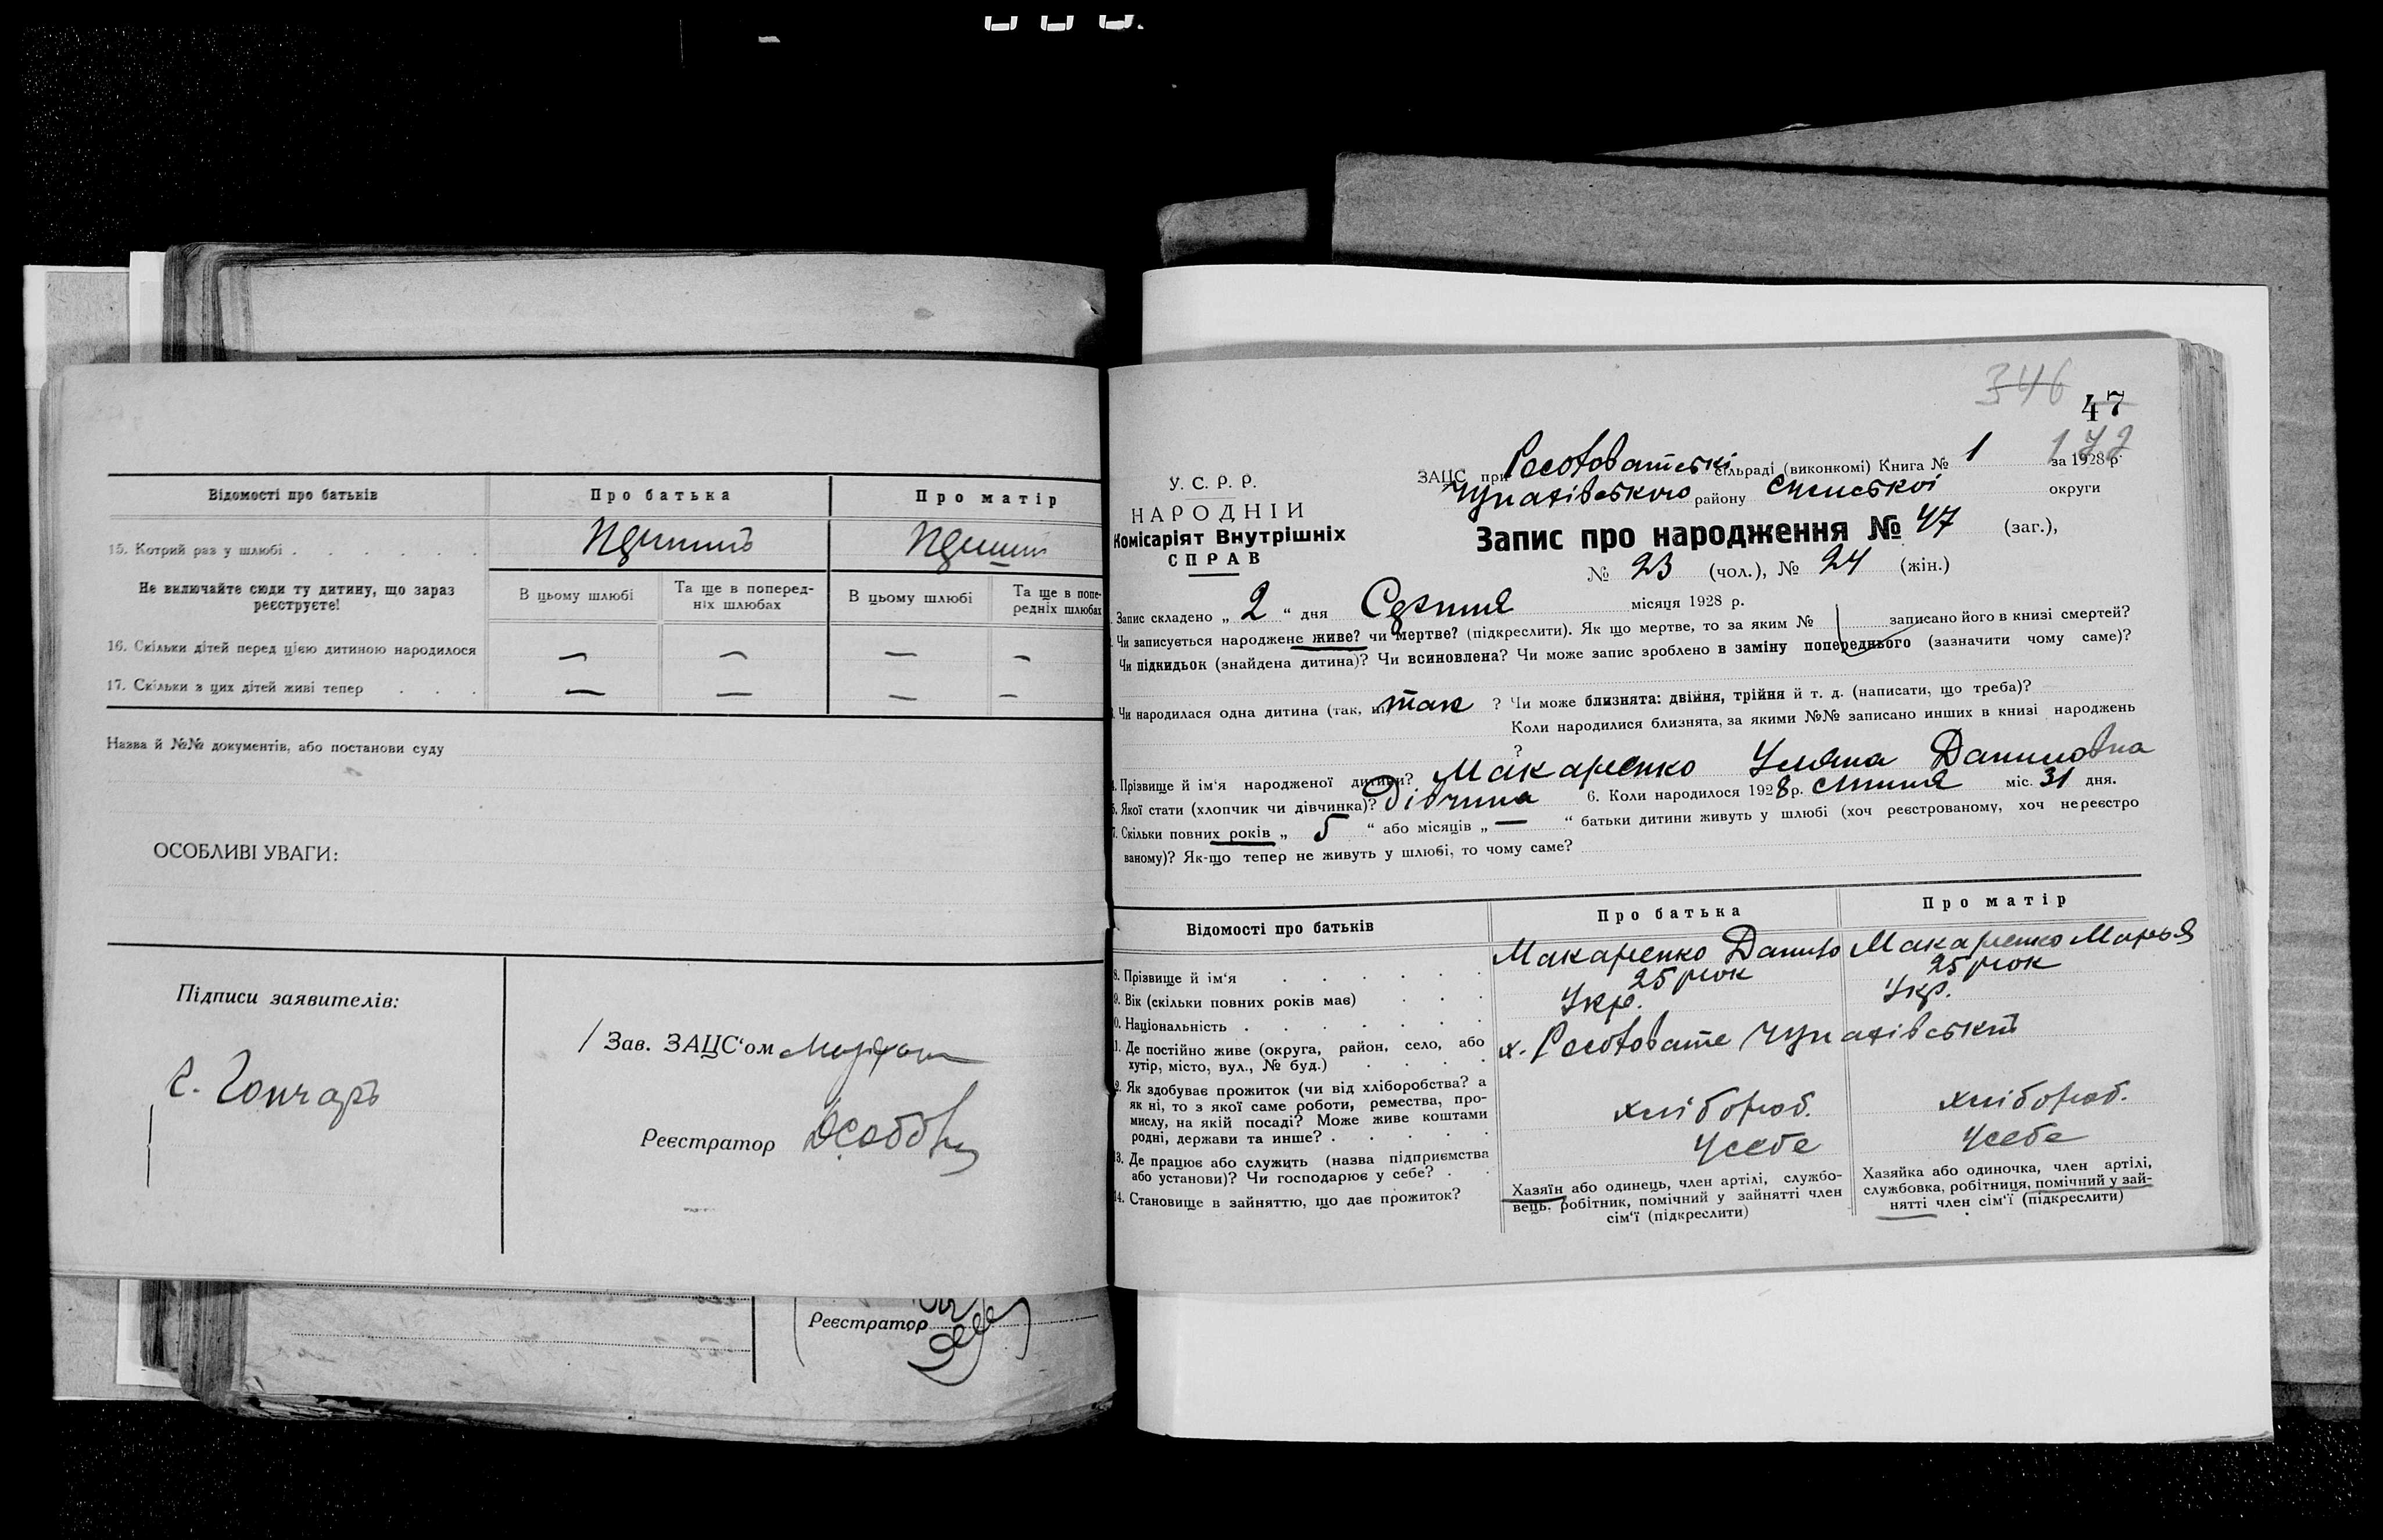 Відомості про батьків
Про батька
Про матір
15. Котрий раз у шлюбі
Не включайте сюди ту дитину, що зараз реєструєте!
В цьому шлюбі
Та ще в поперед-
ніх шлюбах
В цьому шлюбі
Та ще в попе-
редніх шлюбах
16. Скільки дітей перед цією дитиною народилося — — — —
17. Скільки з цих дітей живі тепер — — — —
Назва й №№ документів, або постанови суду
ОСОБЛИВІ УВАГИ:
Підписи заявителів:
Гончаръ
Зав. ЗАЦС‘ом
Реєстратор
Реєстратор
346
47
У. С. Р. Р.
НАРОДНІЙ
Комісаріят Внутрішніх
СПРАВ
ЗАЦС при сільраді (виконкомі) Книга № 1 за 1928 р.
району округи
Запис про народження № 47 (заг.),
№ 23 (чол.), № 24 (жін.)
Запис складено „ 2 “ дня Серпня місяця 1928 р.
Чи записується народжене живе? чи мертве? (підкреслити). Як що мертве, то за яким № записано його в книзі смертей?
Чи підкидьок (знайдена дитина)? Чи всиновлена? Чи може запис зроблено в заміну попереднього (зазначити чому саме)?
Чи народилася одна дитина (так, ні) так ? Чи може близнята: двійня, трійня й т. д. (написати, що треба)?
Коли народилися близнята, за якими №№ записано инших в книзі народжень
?
Прізвище й ім‘я народженої дитини? Макаренко Уляна Даниловна
Якої стати (хлопчик чи дівчинка)? Дівчина 6. Коли народилося 1928 р. липня міс. 31 дня.
7. Скільки повних років „ 5 “ або місяців „ — “ батьки дитини живуть у шлюбі (хоч реєстрованому, хоч нереєстро
ваному)? Як-що тепер не живуть у шлюбі, то чому саме?
Відомості про батьків
Про батька
Про матір
8. Прізвище й ім‘я Макаренко Данило Макаренко Марья
9. Вік (скільки повних років має) 25 рок 25 рок
0. Національність Укр. Укр.
1. Де постійно живе (округа, район, село, або
хутір, місто, вул., № буд.)
2. Як здобуває прожиток (чи від хліборобства? а
як ні, то з якої саме роботи, ремества, про-
мислу, на якій посаді? Може живе коштами
родні, держави та инше? хлібороб. хлібороб.
13. Де працює або служить (назва підприємства
або установи)? Чи господарює у себе? У себе У себе
14. Становище в зайняттю, що дає прожиток?
Хазяїн або одинець, член артілі, службо-
вець, робітник, помічний у зайнятті член
сім‘ї (підкреслити)
Хазяйка або одиночка, член артілі,
службовка, робітниця, помічний у зай-
нятті член сім‘ї (підкреслити)